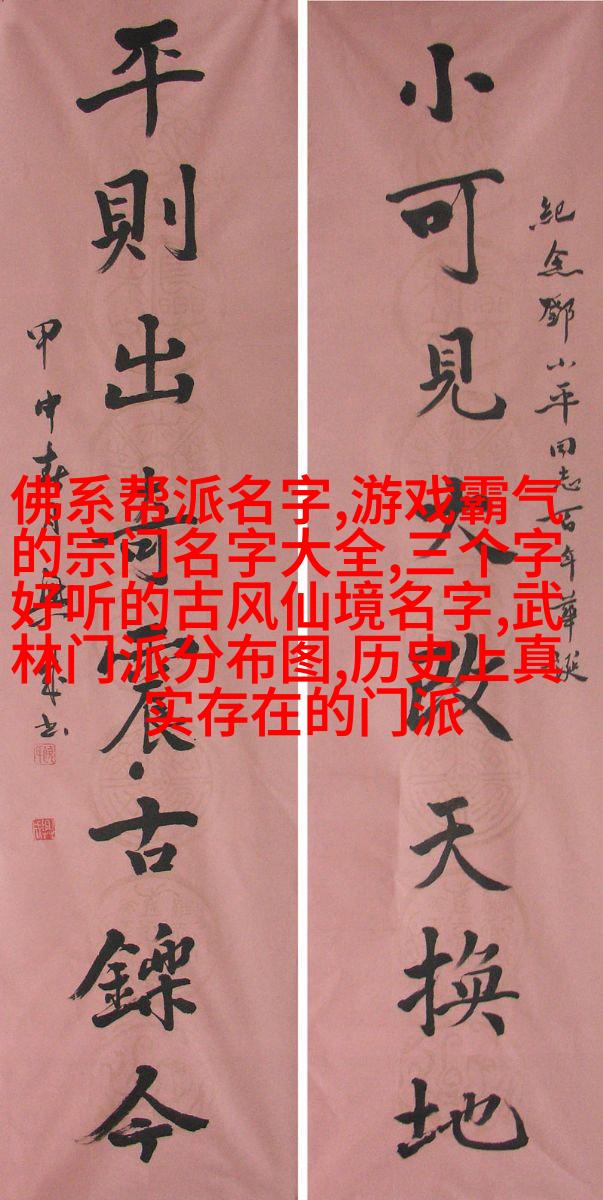 紀念鄧小平同志百年華誕
小可見大改天換地
平則出奇震古鑠今
甲申春月
佛系帮派名字,游戏霸气
的宗门名字大全,三个字
好听的古风仙境名字,武
林门派分布图,历史上真
实存在的门派